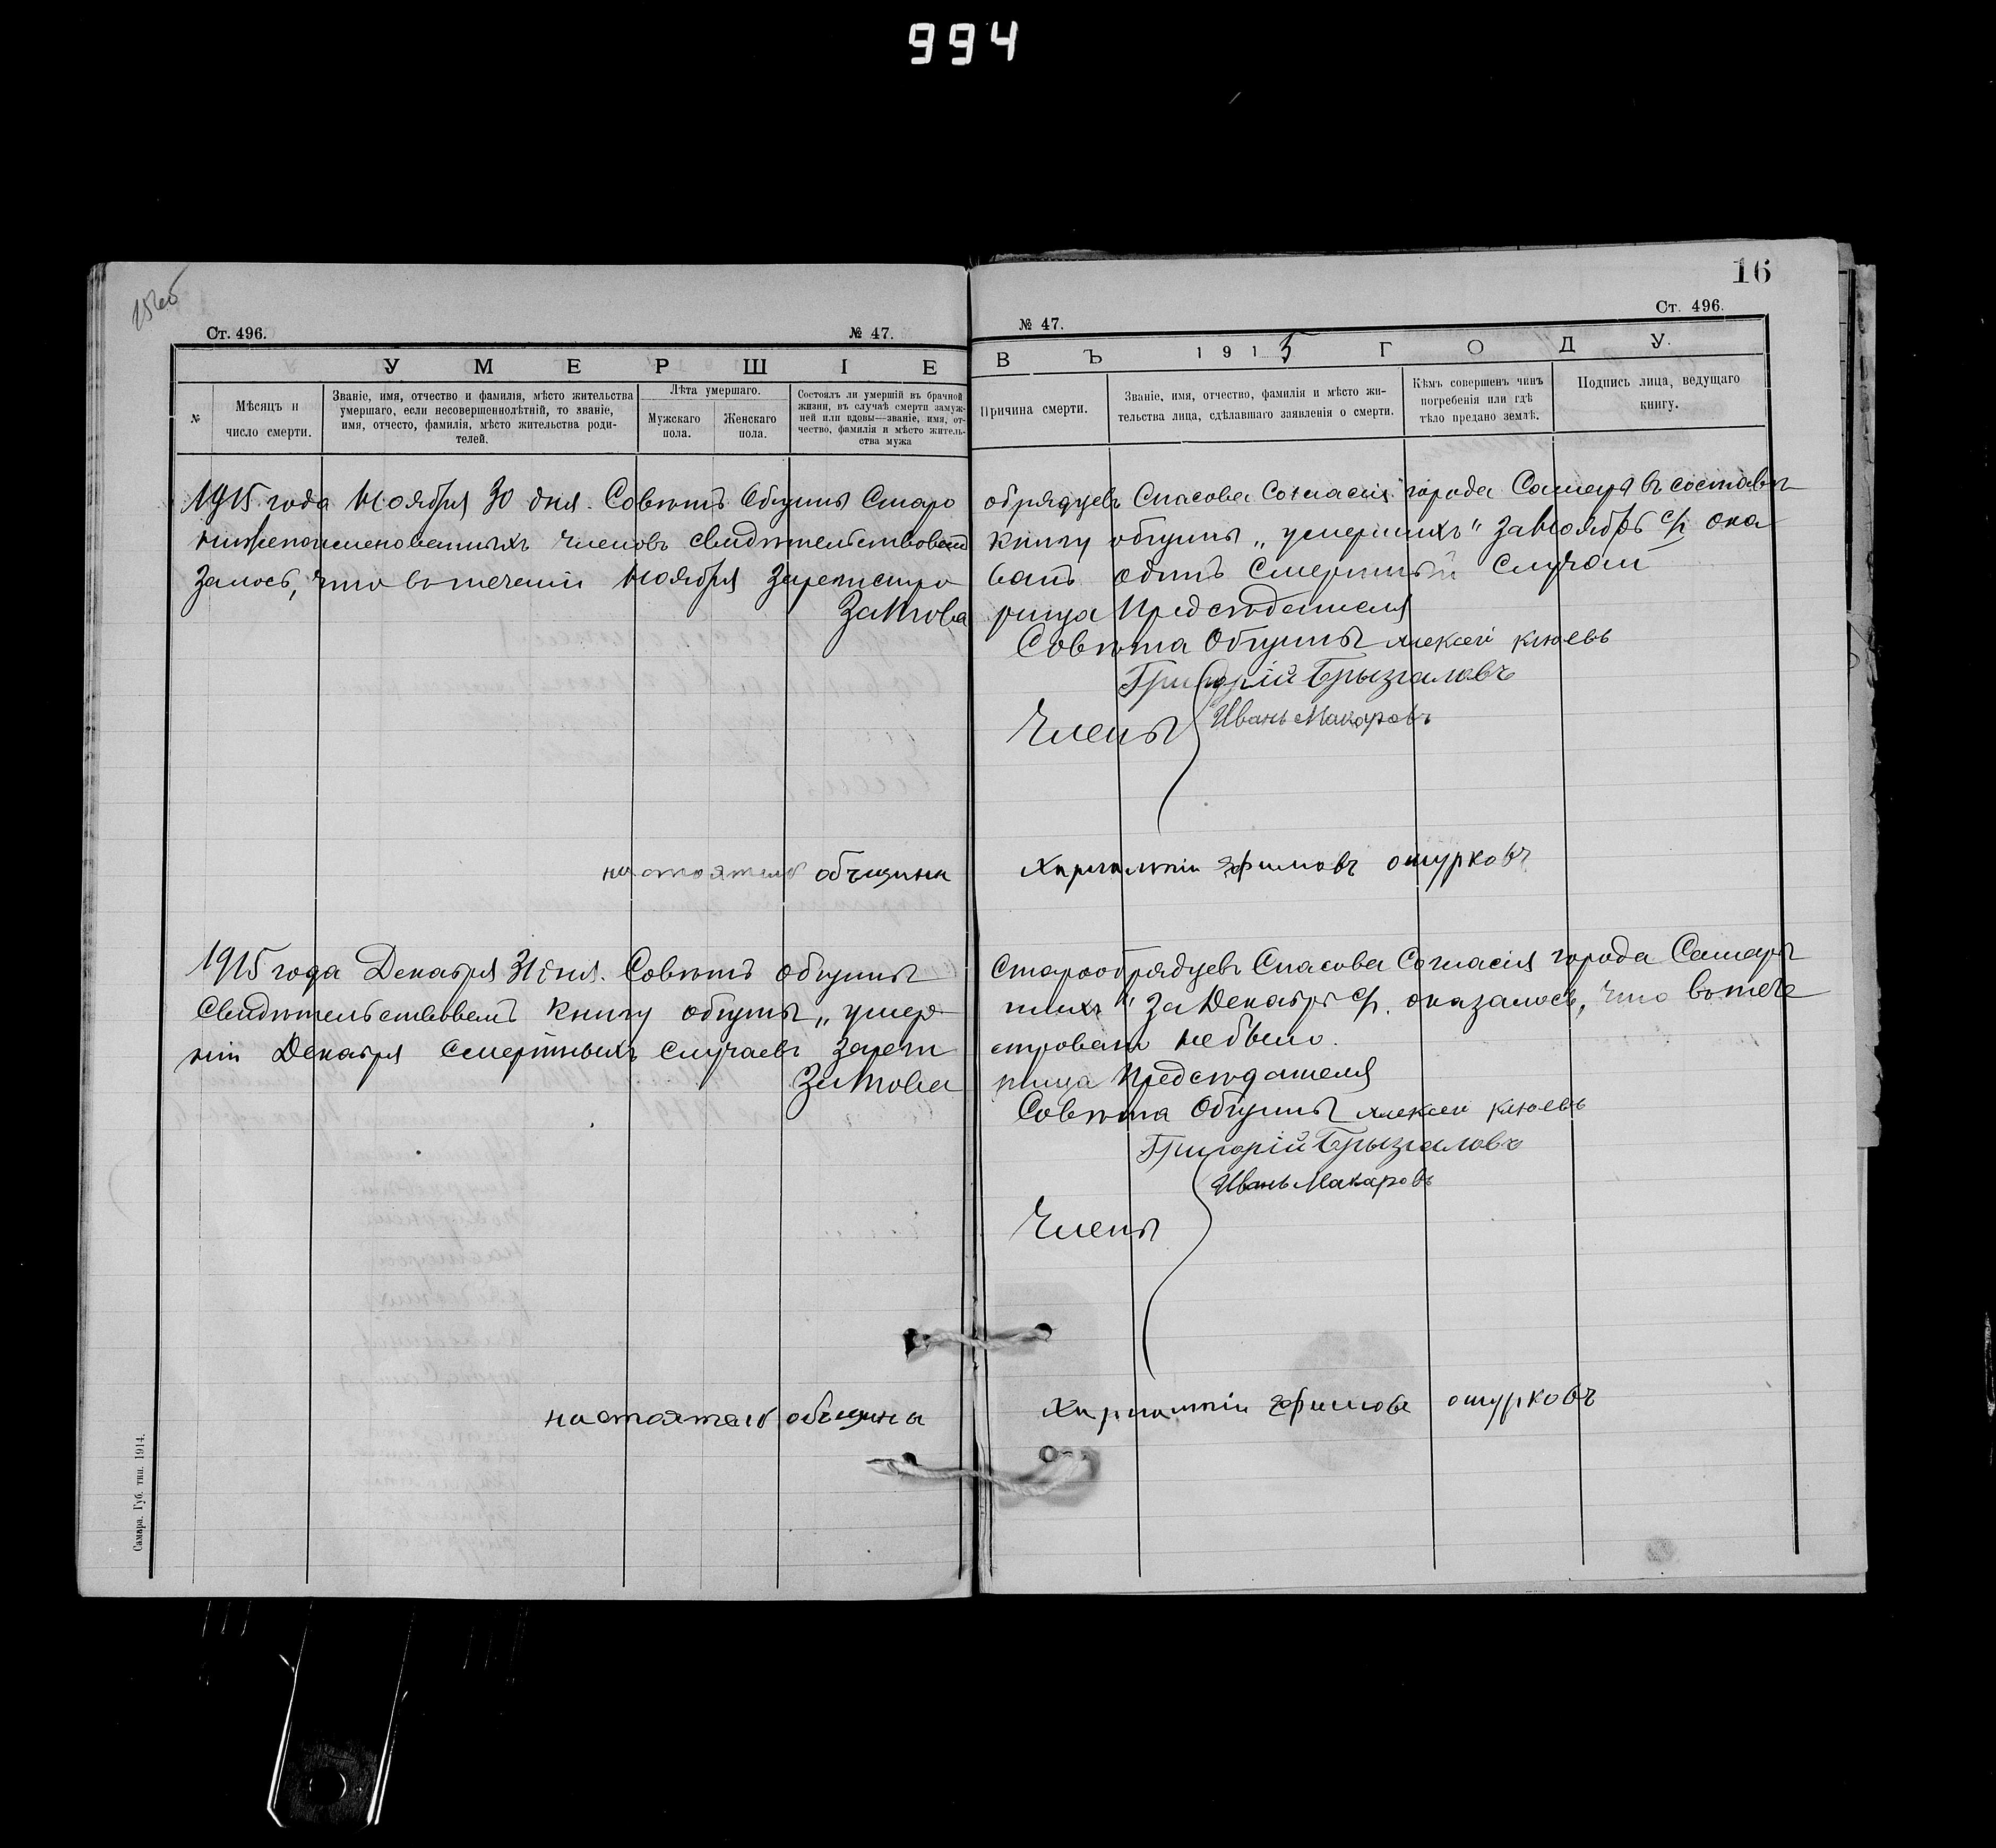 994
15 об
16
Ст. 496.
№ 47.
№ 47.
Ст. 496.
УМЕРШІЕ
ВЪ 1915 ГОДУ.
№
Мѣсяцъ и число смерти.
Званіе, имя, отчество и фамилія, мѣсто жительства
умершаго, если несовершеннолѣтній, то званіе,
имя, отчесто, фамилія, мѣсто жительства роди-
телей.
Лѣта умершаго.
Мужскаго пола.
Женскаго пола.
Состоялъ ли умершій въ брачной
жизни, въ случаѣ смерти замуж-
ней или вдовы—званіе, имя, от-
чество, фамилія и мѣсто житель-
ства мужа
Причина смерти.
Званіе, имя, отчество, фамилія и мѣсто жи-
тельства лица, сдѣлавшаго заявленія о смерти.
Кѣмъ совершенъ чинъ
погребенія или гдѣ
тѣло предано землѣ.
Подпись лица, ведущаго
книгу.
1915 года Ноября 30 дня. Совѣтъ Общины Старо обрядцевъ Спасова Согласія города Самары въ составѣ
нижепоименованныхъ членовъ свидѣтельствовалъ книгу общины „умершихъ" за Ноябрь с/г. ока
залось, что въ теченіи Ноября зарегистро ванъ одинъ смертный случай
За Това рища Предсѣдателя
Совѣта Общины Алексей Клюевъ
Григорій Брызгаловъ
Члены Иванъ Макаровъ
настоятель общины Харлампій Эфимовъ ошурковъ
1915 года Декабря 31 дня. Совѣтъ общины Старообрядцевъ Спасова Согласія города Самары
свидѣтельствовалъ книгу общины „умер шихъ" за Декабрь с/г. оказалось, что въ тече
ніи Декабря смертныхъ случаевъ зареги стровано не было.
За Това рища Предсѣдателя
Совѣта Общины Алексей Клюевъ
Григорій Брызгаловъ
Иванъ Макаровъ
Члены
настоятель общины Харлампій Эфимовъ ошурковъ
Самара. Губ. тип. 1914.